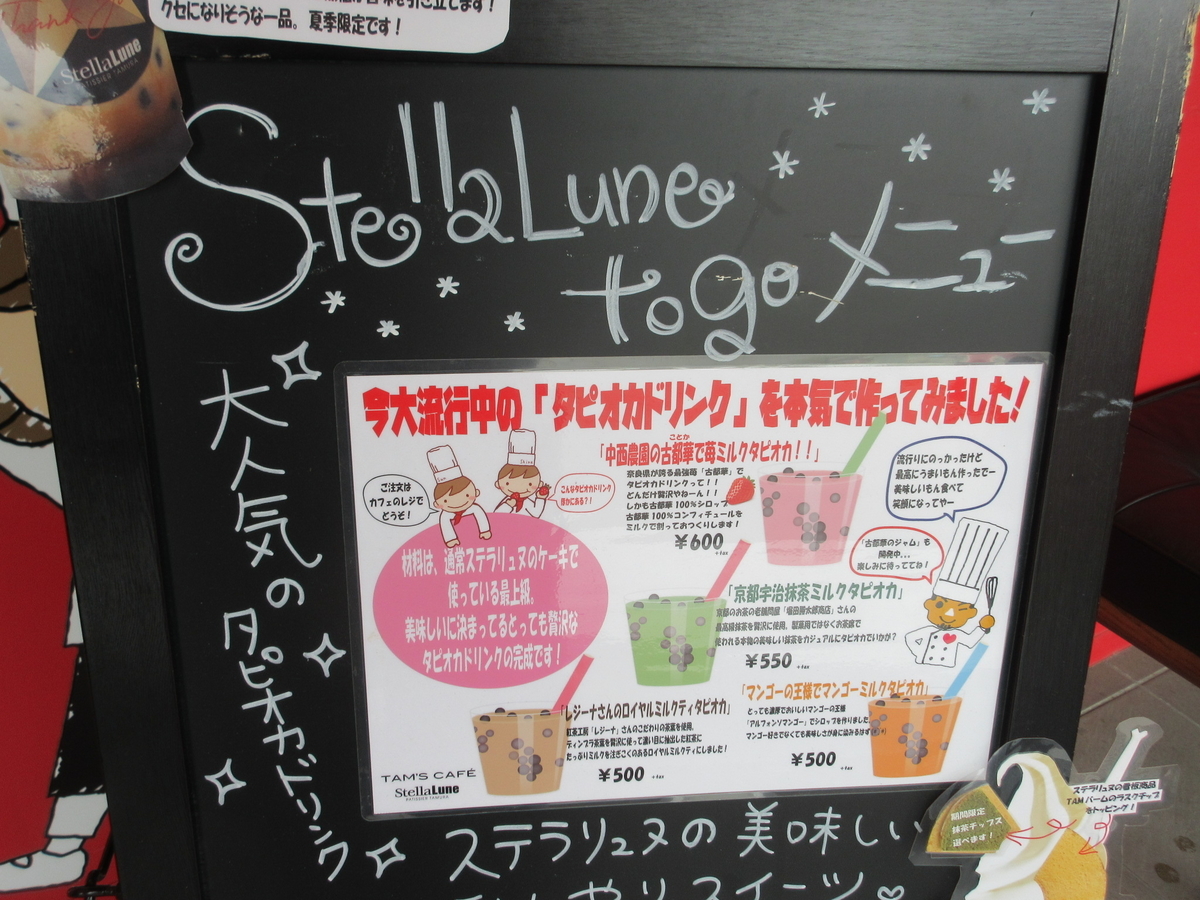 クセになりそうな一品。夏季限定です!
Thank you
StellaLune
PATISSIER TAMURA
StellaLune
to go メニュー
大人気の
タピオカドリンク
今大流行中の「タピオカドリンク」を本気で作ってみました!
ことか
「中西農園の古都華で苺ミルクタピオカ!!」
奈良県が誇る最強苺「古都華」で
タピオカドリンクって!!
どんだけ贅沢やねーん!!
しかも古都華100%シロップ
古都華100%コンフィチュールを
ミルクで割っておつくりします!
¥600
+tax
ご注文は
カフェのレジで
どうぞ!
こんなタピオカドリンク
ほかにある?!
流行りにのっかったけど
最高にうまいもん作ったでー
美味しいもん食べて
笑顔になってやー
「古都華のジャム」も
開発中…
楽しみに待っててね!
材料は、通常ステラリュヌのケーキで
使っている最上級。
美味しいに決まってるとっても贅沢な
タピオカドリンクの完成です!
「京都宇治抹茶ミルクタピオカ」
京都のお茶の老舗問屋「堀田勝太郎商店」さんの
最高級抹茶を贅沢に使用。製菓用ではなくお茶席で
使われる本物の美味しい抹茶をカジュアルにタピオカでいかが?
¥550
+tax
「レジーナさんのロイヤルミルクティタピオカ」
紅茶工房「レジーナ」さんのこだわりの茶葉を使用。
ディンブラ茶葉を贅沢に使って濃い目に抽出した紅茶に
たっぷりミルクを注ぎこくのあるロイヤルミルクティにしました!
¥500
+tax
「マンゴーの王様でマンゴーミルクタピオカ」
とっても濃厚でおいしいマンゴーの王様
「アルフォンソマンゴー」でシロップを作りました。
マンゴー好きでなくても美味しさが身に染みるはず
¥500
+tax
TAM'S CAFÉ
StellaLune
PATISSIER TAMURA
ステラリュヌの看板商品
TAMバームのラスクチップ
をトッピング!
期間限定
抹茶チップス
選べます!
ステラリュヌの美味しい
ひんやりスイーツ♡